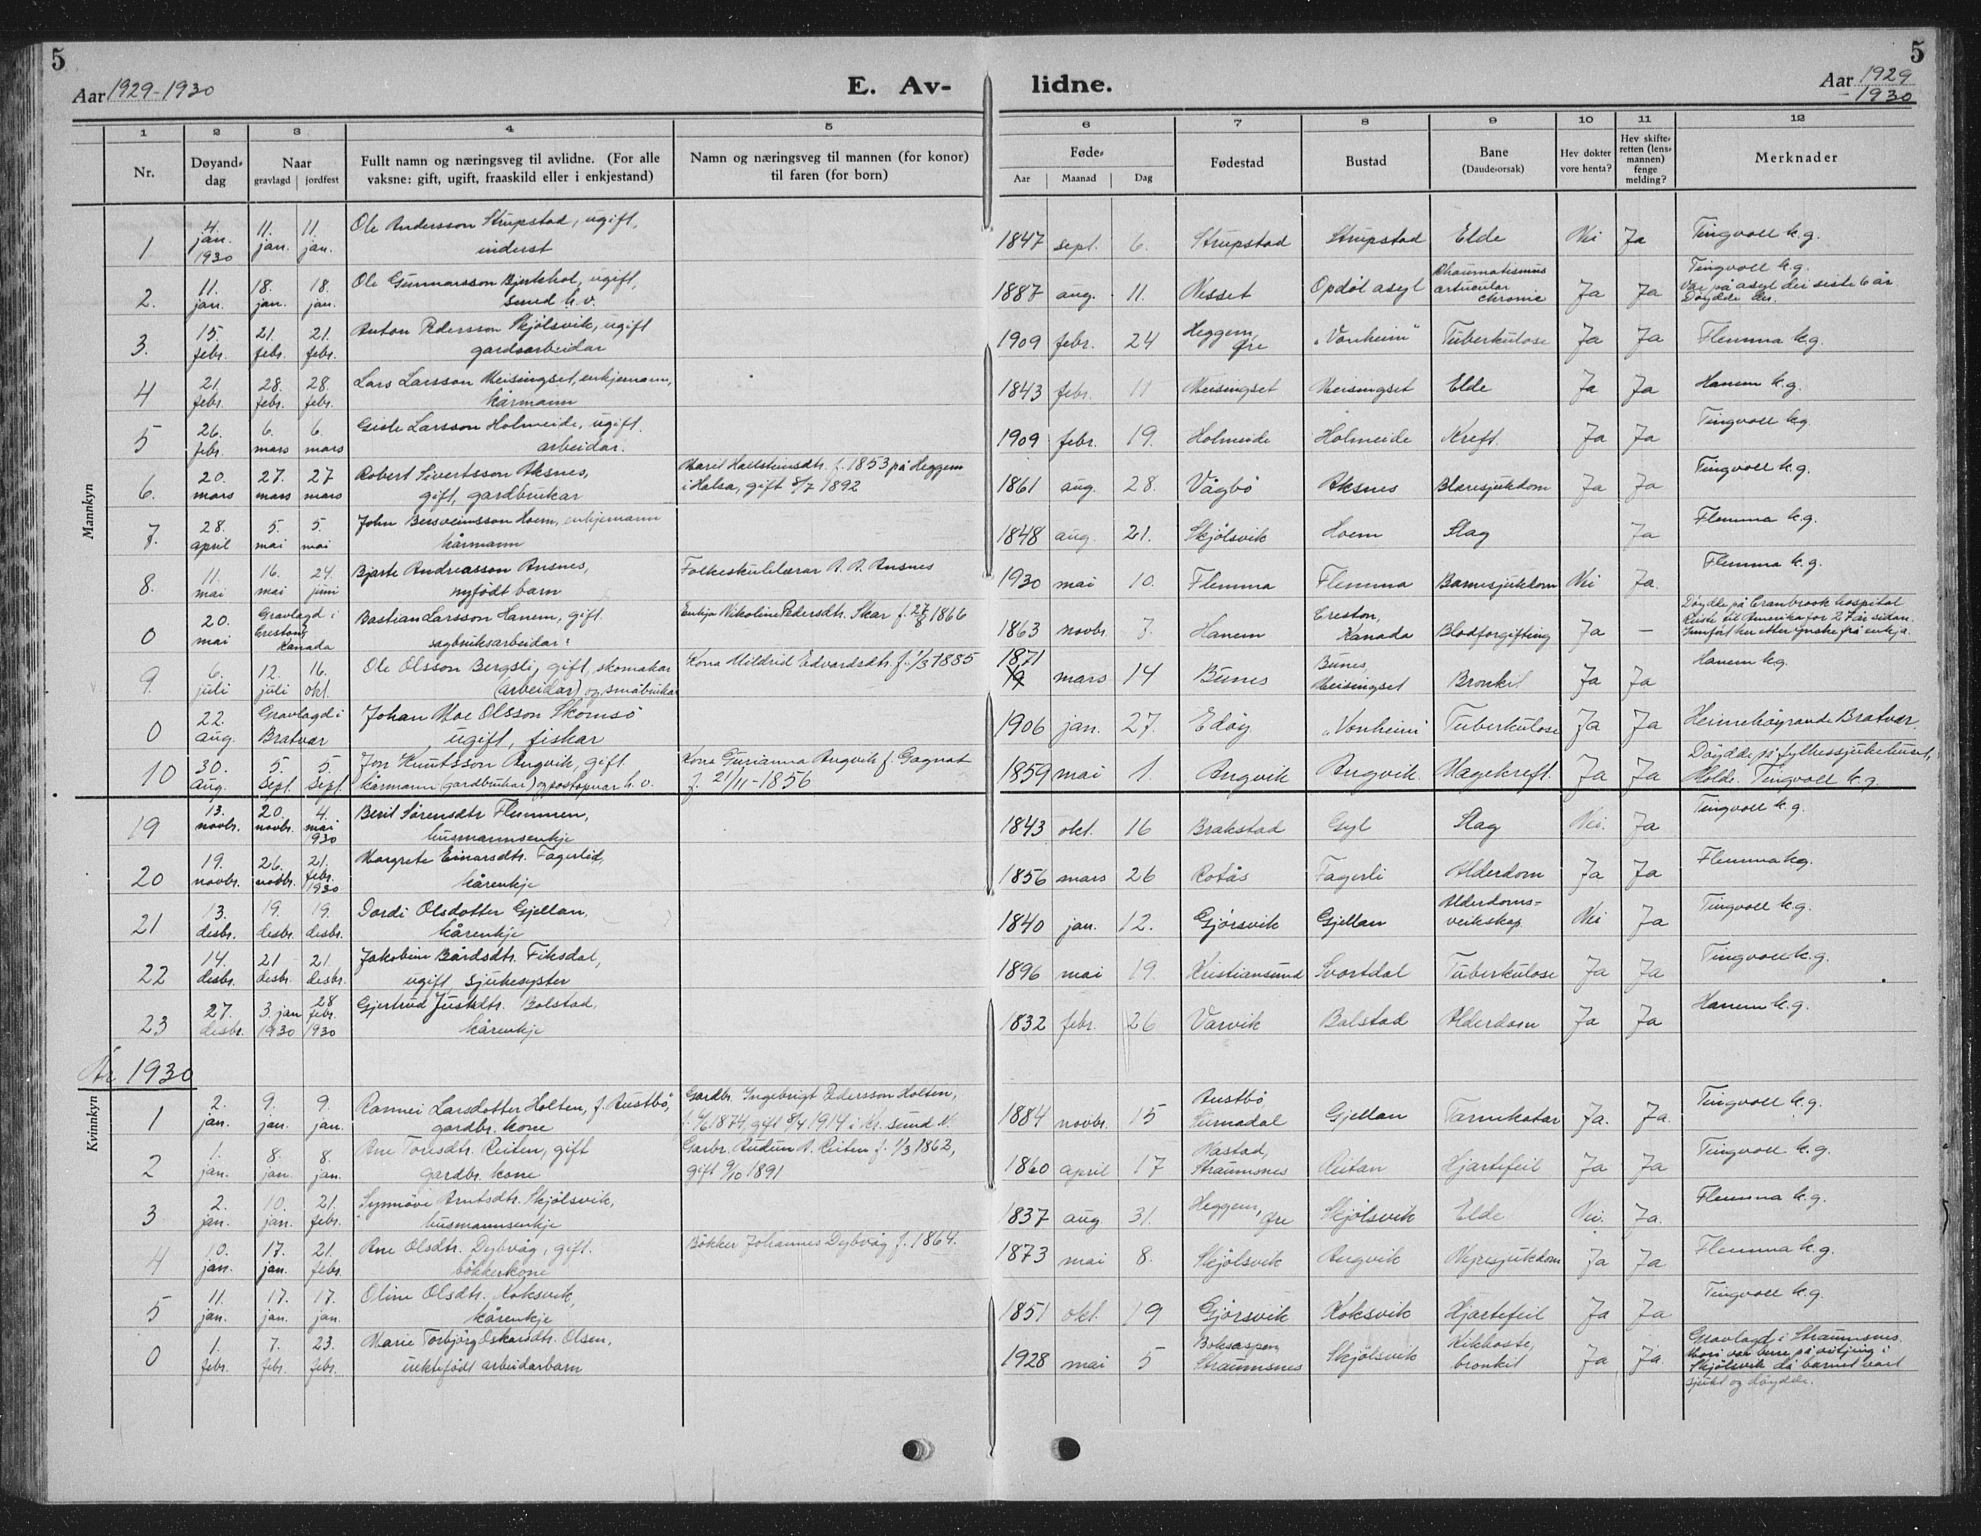 5
5
Aar 1929-1930
E. Av-
lidne.
Aar 1929
-1930
1
2
3
4
5
6
7
8
9
10
11
12
Nr.
Døyand-dag
Naar
gravlagd
jordfest
Fullt namn og næringsveg til avlidne. (For alle vaksne: gift, ugift, fraaskild eller i enkjestand)
Namn og næringsveg til mannen (for konor) til faren (for born)
Føde-
Aar
Maanad
Dag
Fødestad
Bustad
Bane
(Daude-orsak)
Hev dokter vore henta?
Hev skifte-retten (lens-mannen) fenge melding?
Merknader
Mannkyn
1 4. jan. 1930 11. jan. 11. jan. Ole Andersson Strupstad, ugift, inderst 1847 sept. 6. Strupstad Strupstad Elde Nei Ja Tingvoll k.g.
2. 11. jan. 18. jan. 18. jan. Ole Gunnarsson ugift, smed h.v. 1887 aug. 11. Nesset Opdøl asyl Rhaumatismus articular chronic Ja Ja Tingvoll k.g. Var på asyl dei siste 6 år Døydde der.
3. 15. febr. 21. febr. 21. febr. Anton Pedersson Skjølsvik, ugift gardsarbeidar 1909 febr. 24 Heggem, Øre "Vonheim" Tuberkulose Ja Ja Flemma k.g.
4 21. febr. 28. febr. 28. febr. Lars Larsson Meisingset, enkjemann, kårmann 1843 febr. 11 Meisingset Meisingset Elde Ja Ja Hanem k.g.
5 26. febr. 6. mars 6. mars Larsson Holmeide, ugift. arbeidar. 1909 febr. 19. Holmeide Holmeide Kreft. Ja Ja Tingvoll k.g.
6. 20. mars 27. mars 27 mars Robert Sivertsson Aksnes, gift, gardbrukar Marit Hallsteinsdtr. f. 1853 på Heggem i Halsa, gift 8/7 1892 1861 aug. 28. Vågbø Aksnes Blæresjukdom Ja Ja Tingvoll k.g.
7. 28. april 5. mai 5. mai John Bersveinsson Hoem, enkjemann kårmann 1848 aug. 21. Skjølsvik Hoem Slag Ja Flemma k.g.
8. 11. mai 16. mai 24. juni Bjarte Andreasson Ansnes, nyfødt barn Folkeskulelærar A. A. Ansnes 1930 mai 10. Flemma Flemma Barnesjukdom Nei Ja. Flemma k.g.
0 20. mai Gravlagd i Creston, Kanada Bastian Larsson Hanem, gift. sagbruksarbeidar. Enkja Nikoline Pedersdtr. Skar f. 1866 1863 novbr. 7. Hanem Creston, Kanada Blodforgifting Ja - Døydde på Cranbrook hospital Reiste til Amerika for 27 år sidan. Innført her etter ynske frå enkja.
9. 6. juli 12. juli 16. okt. Ole Olsson Bergsli, gift, skomakar (arbeidar) og småbrukar Kona Mildrid Edvardsdtr. f. 1/3 1885 1871 mars 14 Bunes Bunes, Meisingset Bronkit Ja Ja Hanem k.g.
0 22. aug. Gravlagd i Bratvær Johan Moe Olsson Skomsø ugift, fiskar 1906 jan. 27. Edøy "Vonheim" Tuberkulose Ja Ja Heimehøyrande Bratvær.
10 30. aug. 5. sept. 5. sept. Jon Knutsson Angvik, gift. kårmann (gardbrukar) og postopnar h.v. Kona Gurianna Angvik f. Gagnat f. 21/11-1856 1859 mai 1. Angvik Angvik. Magekreft. Ja Ja Døydde på fylkessjukehuset, Molde. Tingvoll k.g.
19 13. novbr. 20. novbr. 4. mai 1930 Berit Sørensdtr Flemmen, husmannsenkje 1843 okt. 16 Brakstad Gyl Slag Nei. Ja Tingvoll k.g.
20 19. novbr. 26. novbr. 21. febr. 1930 Margrete Einarsdtr. Fagerlid, kårenkje 1856 mars 26 Rotås Fagerli Alderdom Ja Ja Flemma k.g.
21 13. desbr. 19. desbr. 19. desbr. Dordi Olsdotter Gjellan, kårenkje 1840 jan. 12. Gjørsvik Gjellan Alderdoms-veikskap Nei Ja Tingvoll k.g.
22 14. desbr. 21 desbr. 21. desbr. Jakobine Bårdsdtr. Fiksdal, ugift, sjukesyster 1896 mai 19. Kristiansund Svortdal Tuberkulose Ja Ja Tingvoll k.g.
23 27. desbr. 3. jan 1930 28 febr. 1930 Gjertrud Justsdtr. Bolstad, kårenkje 1832 febr. 26 Varvik Bolstad Alderdom Ja Ja Hanem k.g.
År 1930
Kvinnkyn
1 2. jan. 9. jan. 9. jan. Rannei Larsdotter Holten, f. Austbø, gardbr. kone Gardbr. Ingebrigt Pedersson Holten, 1874, gift 8/4 1914 i Kr. sund N. 1884 novbr. 15 Austbø Surnadal Gjellan Tarmkatar Ja. Ja. Tingvoll k.g.
2 1. jan. 8. jan. 8. jan. Ane Toresdtr. Reiten, gift gardbr. kone Garbr. Audun A. Reiten f. 1/3 1862, gift 9/10 1891 1860 april 17 Hastad, Straumsnes Reitan Hjartefeil Ja Ja Tingvoll k.g.
3 2. jan. 10. jan. 21. febr. Synnøve Arntsdtr. Skjølsvik, husmannsenkje 1837 aug. 31. Heggem, Øre Skjølsvik Elde Nei. Ja. Flemma k.g.
4 10. jan. 17. jan. 21. febr. Ane Olsdtr. Dybvåg, gift. bøkkerkone Bøkker Johannes Dybvåg f. 1864. 1873 mai 8. Skjølsvik Angvik Nyresjukdom Ja Ja Flemma k.g.
5 11. jan. 17. jan. 17. jan. Oline Olsdtr. Koksvik, kårenkje 1851 okt. 19 Gjørsvik Koksvik Hjartefeil Ja Ja Tingvoll k.g.
0 1. febr. 7. febr. 23. febr. Marie Torbjørg Oskarsdtr. Olsen, uektefødt arbeidarbarn 1928 mai 5 Straumsnes Skjølsvik Kikhoste, bronkit Ja Ja. Gravlagd i Straumsnes. Mori var berre på vitjing i Skjølsvik då barnet vart sjukt og døydde.